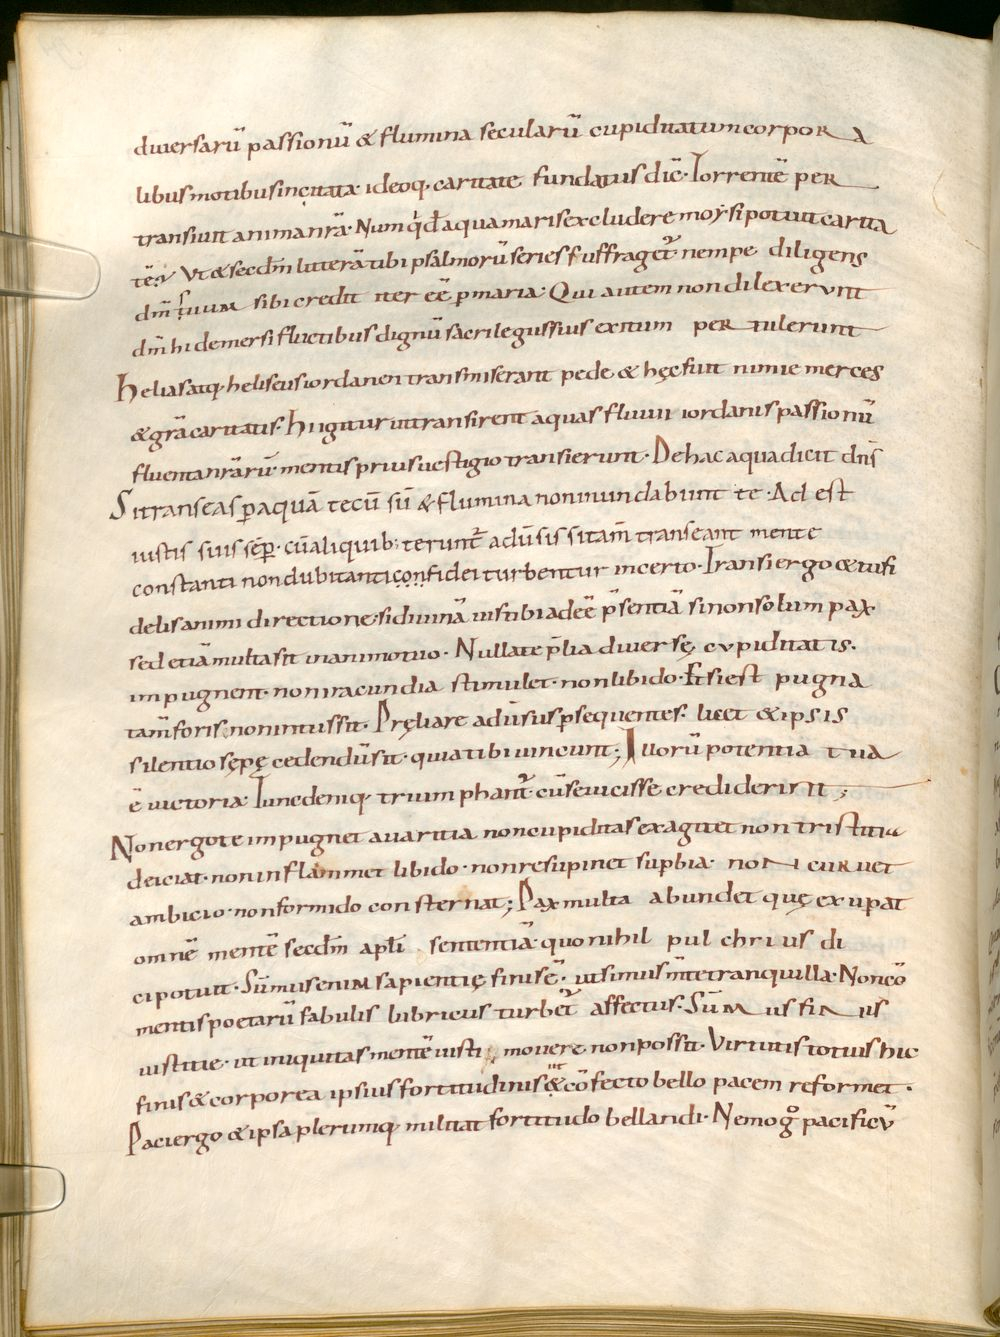 diversarū passionū & flumina secularū cupiditatum corpora
libus motibus incitata· ideoq· caritate fundatus dic̄· Torrentē per
transiuit anima nr̄a· Numqđ aqua maris excludere moysi potuit carita
tē· Ut & secdm̄ litterā tibi psalmorū series suffraget᷑ nempe diligens
dm̄ suum sibi credit iter eē p maria· Qui autem non dilexerunt
dm̄ hi demersi fluctibus dignū sacrilegus suis exitum pertulerunt
Helias atq· heliseus iordanen transmiserant pede & hęc fuit nimie merces
& gr̄a caritatis· Hi igitur ut transirent aquas fluuii iordanis passionū
fluenta nr̄arū mentis prius uestigio transierunt· De hac aqua dicit dn̄s
Si transeas p aquā tecū sū & flumina non inundabunt te· Ad est
iustis suis sēp· cū aliquib; terunt᷑ adūsis si tam̄ transeant mente
constanti non dubitanti confidei turbentur incerto· Transi ergo & tu fi
delis animi directione· si diuinā ius tibi adeē p̄sentiā si non solum pax
sed etiā multa sit in animo tuo· Nulla te p̄lia diuersę cupiditatis·
impugnent· non iracundia stimulet· non libido· Et si est pugna
tam̄ foris non intus sit· Pręliare adūsus p̄sequentes· licet & ipsis
silentio sępę cedendū sit· quia tibi uincunt; Illorū potentia tua
ē uictoria· Tunc demq· triumphant᷑ cū se uicisse crediderint;
Non ergo te impugnet auaritia non cupiditas exagitet non tristitia
deiciat· non inflammet libido· non resupinet supbia· non curuet
ambicio· non formido consternat; Pax multa abundet quę exupat
omnē mentē secdm̄ apłi sententiā· quo nihil pulchrius di
ci potuit· Sūmus enim sapientię finis ē· ut simus m̄te tranquilla· Non eō
mentis poetarū fabulis lubricus turbet᷑ affectus· Sūmus finis
iustitie· ut iniquitas mentē iusti mouere non possit· Virtutis totius hic
finis & corporea ipsius fortitudinis & cōfecto bello pacem reformet·
Paci ergo & ipsa plerumq· militat fortitudo bellandi· Nemo g̊ pacificū